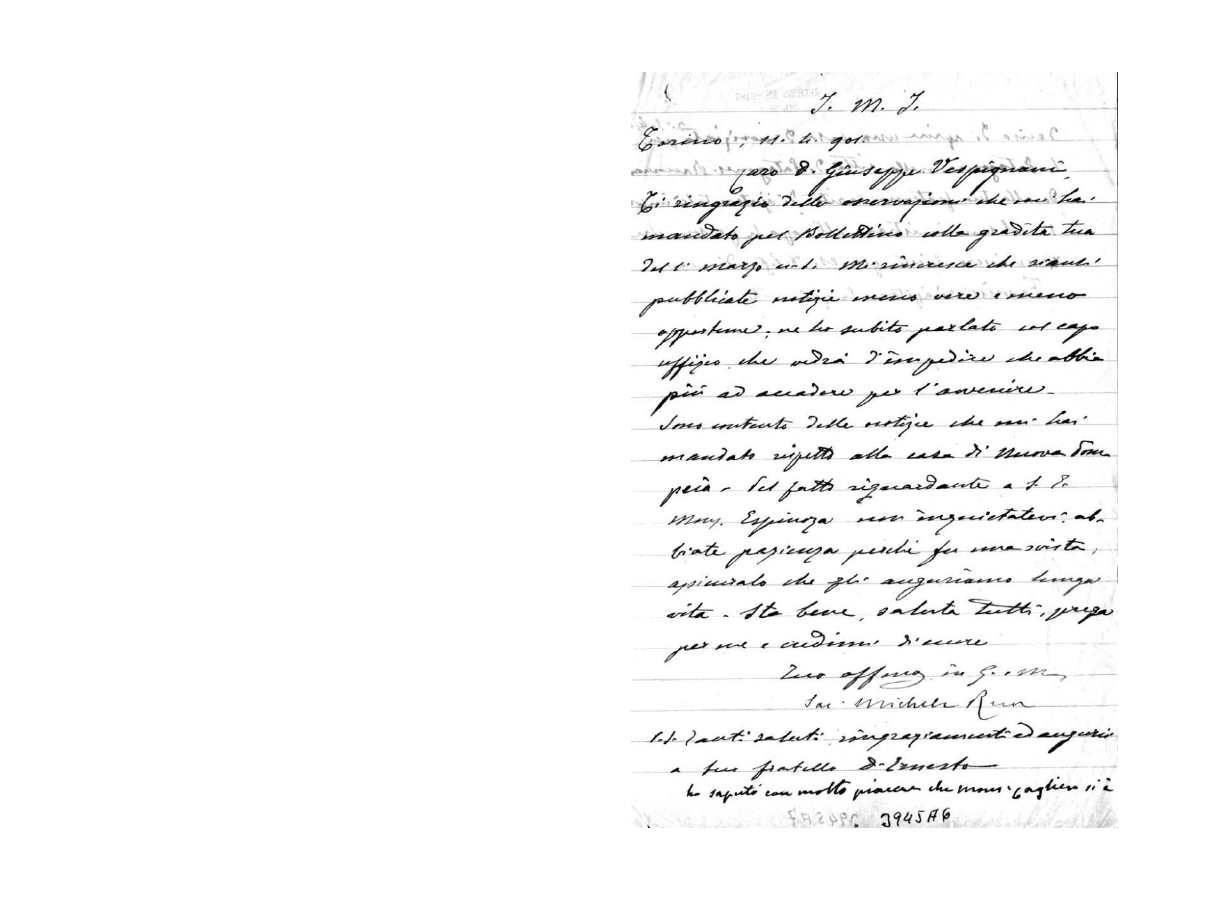 J. M. J.
Torino, 11. 4. 901.
Caro D. Giuseppe Vespignani,
Ti ringrazio delle osservazioni che mi hai
mandato pel Bollettino colla gradita tua
del 1° marzo Mi rincresce che siansi
pubblicate notizie meno vere e meno
opportune, ne ho subito parlato col capo
uffizio che vedrà d'impedire che abbia
più ad accadere per l'avvenire -
Sono contento delle notizie che mi hai
mandato rispetto alla casa di Nuova Pom
peia - Del fatto riguardante a S. E.
Mons. Espinoza non inquietatevi, ab-
biate pazienza perchè fu una svista,
assicuralo che gli auguriamo lunga
vita - Sta bene, saluta tutti, prega
per me e credimi di cuore
Tuo affmo in G. e M.
Sac. Michele Rua
Tanti saluti, ringraziamenti ed augurii
a tuo fratello D. Ernesto
ho saputo con molto piacere che mons. Cagliero si è
3945A6